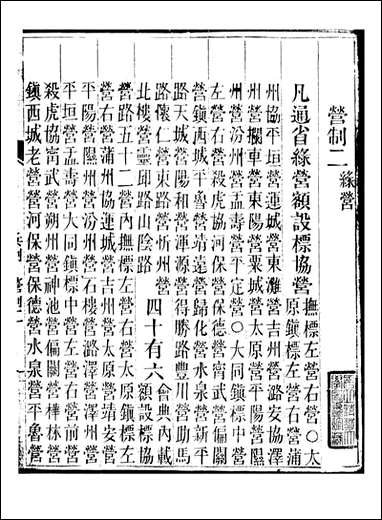 營制二 綠營
凡通省綠營額設標協營
撫標左營右營○太
原鎮標左營右營蒲
州協平垣營運城營東灘營吉州營潞安協潞
州營攔車營東陽營粟城營太原營平陽營隰
州營汾州營盂壽營平定營○大同鎮標中營
左營右營殺虎協河保營寧武營偏關
營鎮西城平魯營靖遠營歸化營水泉營新平
路天城營陽和營渾源營得勝路豐川營助馬
路懷仁營東路營忻州營
北樓營靈邱路山陰路
四十有六
會典內載
額設標協
營路五十二營內撫標左營右營太原鎮標左
營右營蒲州協運城營吉州營太原營潞安營
平陽營隰州營汾州營石樓營潞澤營澤州營
平垣營盂壽營大同鎮標中營左營右營前
殺虎協甯武營朔州營神池營偏關營樺林營
鎮西城老營營河保營保德營水泉營平魯營